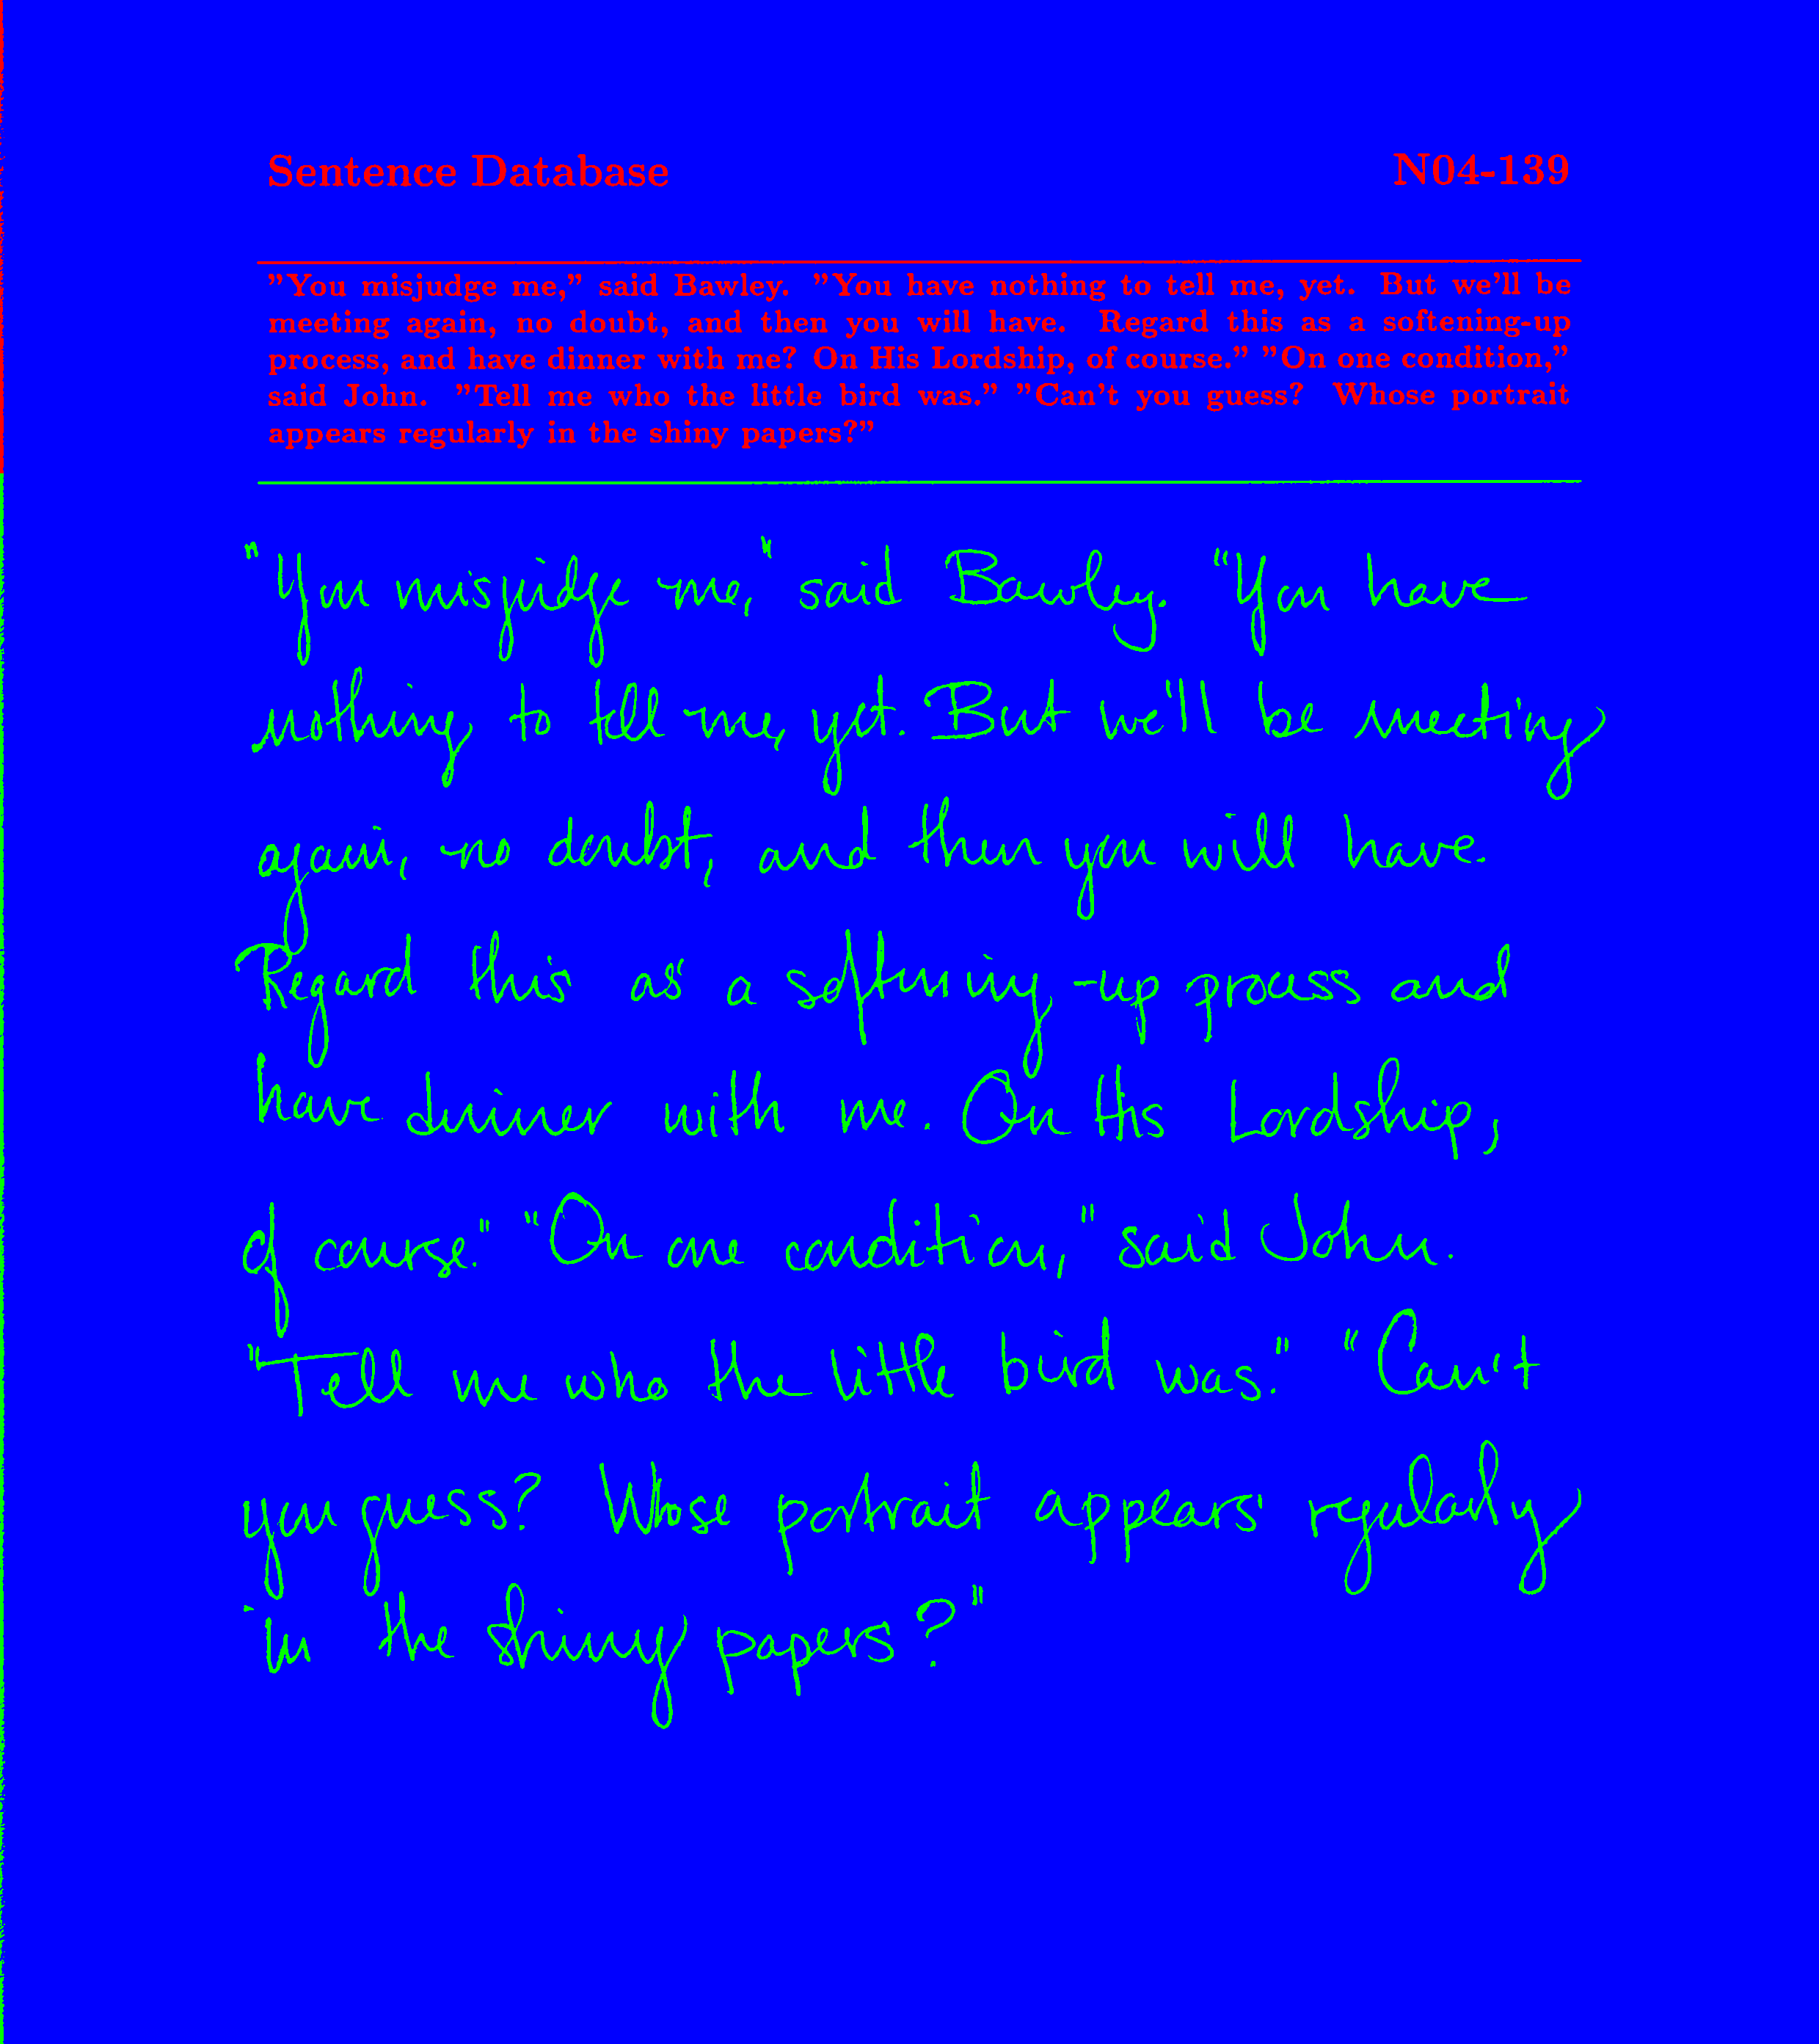 Sentence Database N04-139
"You misjudge me," said Bawley. "You have nothing to tell me, yet. But we'll be
meeting again, no doubt, and then you will have. Regard this as a softening-up
process, and have dinner with me? On His Lordship, of course." "On one condition,"
said John. "Tell me who the little bird was." "Can't you guess? Whose portrait
appears regularly in the shiny papers?"
"You misjudge me," said Bawley. "You have
nothing to tell me, yet. But we'll be meeting
again, no doubt, and then you will have.
Regard this as a softening-up process and
have dinner with me. On His Lordship,
of course." "On one condition," said John.
"Tell me who the little bird was." "Can't
you guess? Whose portrait appears regularly
in the shiny papers?"